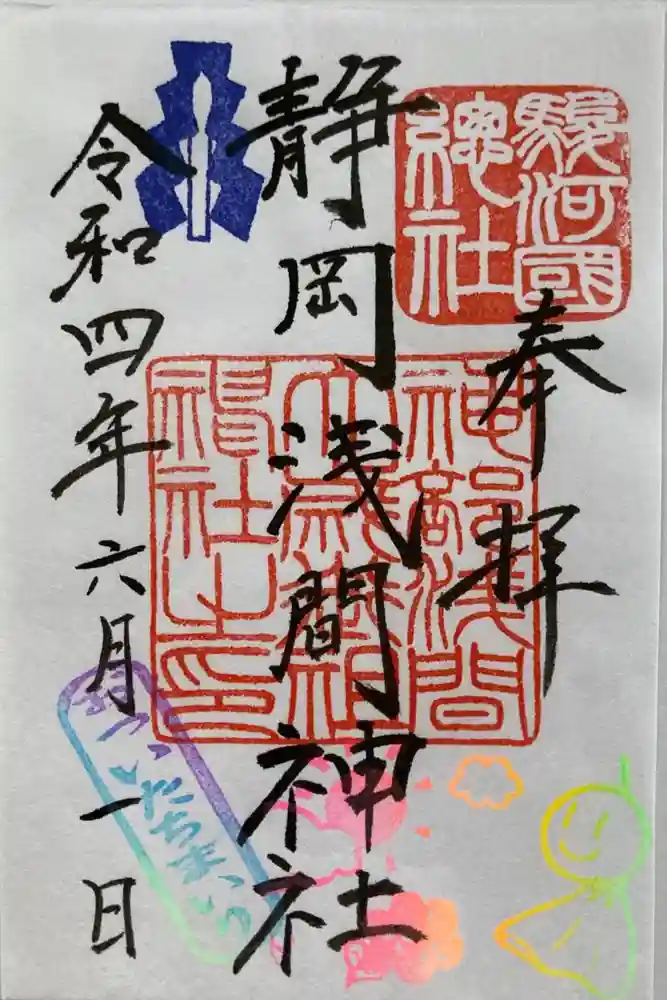 奉拝
駿河國
總社
静岡浅間神社
神部浅間
大歳御祖
神社之印
令和四年六月一日
おついたちまいり